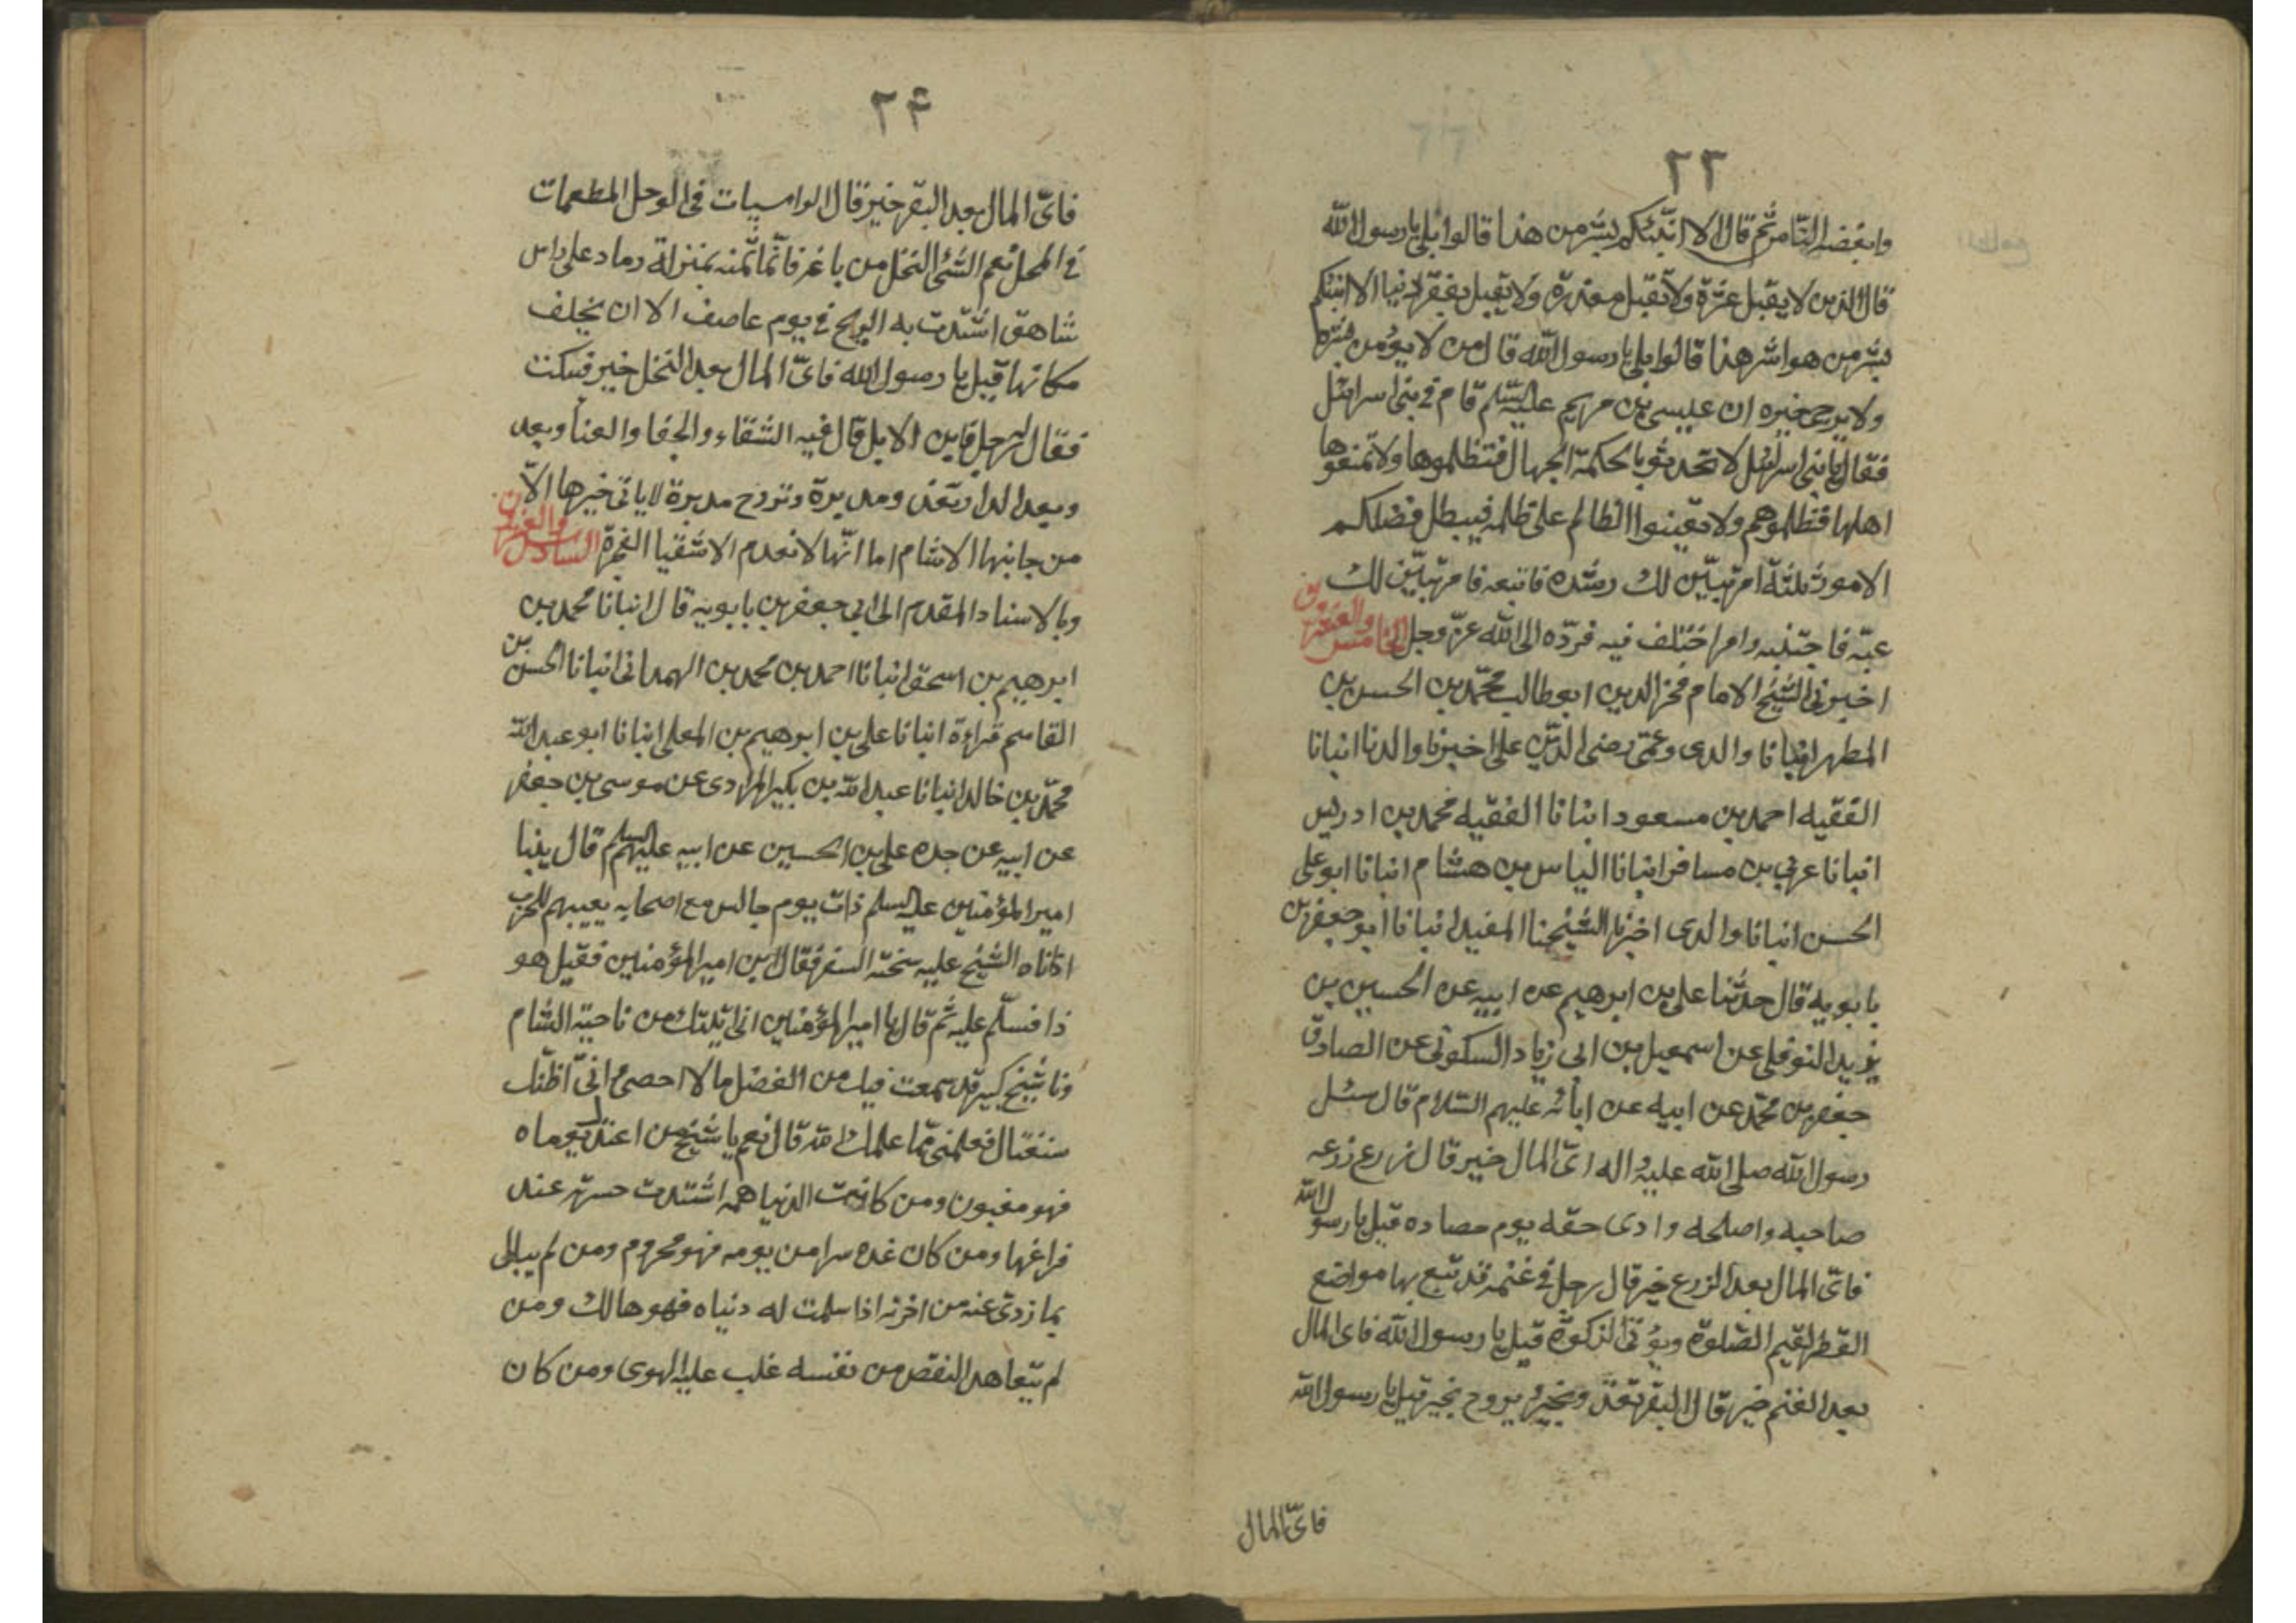 ٢٣
وابغضه الناس ثم قال الا انبئكم بشر من هذا قالوا بلى يا رسول الله
قال الذين لا يقبل عثرة ولا تقبل معذرة ولا يقبل الا انبئكم
بشر من هو اشر هذا قالوا بلى يا رسول الله قال من لا يؤمن شره
ولا يرجى خيره ان عيسى بن مريم عليه السلم قام فى بنى اسرائيل
فقال يا بنى اسرائيل لا تحدثو بالحكمة الجهال فتظلموها ولا تمنعوها
اهلها فتظلموهم ولا تعينوا الظالم على ظلمه فيبطل فضلكم
الامور ثلثة امر تبيّن لك رشده فاتبعه فامر تبيّن لك
غيّه فاجتنبه وامر اختلف فيه فردّه الى الله عزّ وجل الخامس والعشرون
اخبرنى الشيخ الامام فخر الدين ابو طالب محمّد بن الحسن بن
المطهر انبانا والدى وعمى رضى الدين على اخبرنا والدنا انبانا
الفقيه احمد بن مسعود انبانا الفقيه محمد بن ادريس
انبانا عربى بن مسافر انبانا الياس بن هشام انبانا ابو على
الحسن انبانا والدى اخبرنا الشيخنا المفيد انبانا ابو جعفر بن
بابويه قال حدثنا على بن ابرهيم عن ابيه عن الحسين بن
يزيد النوفلى عن اسمعيل بن ابى زياد السكونى عن الصادق
جعفر بن محمّد عن ابيه عن ابائه عليهم السّلام قال سئل
رسول الله صلى الله عليه واله اىّ المال خير قال زرع زرعه
صاحبه واصلحه وادى حقه يوم حصاده قيل يا رسول الله
فاىّ المال بعد الزرع خير قال رجل فى غنمه قد تبع بها مواضع
القطر يقيم الصّلوة ويؤتى الزكوة قيل يا رسول الله فاى المال
بعد الغنم خير قال البقر تغد وبخير ويروح بخير قيل يا رسول الله
فاىّ المال
٢۴
فاىّ المال بعد البقر خير قال الراسيات فى الوحل المطعمات
فى المحل نعم الشئ النخل من باعه فانّما ثمنه بمنزلة رماد على راس
شاهق اشتدت به الريح فى يوم عاصف الا ان يخلف
مكانها قيل يا رسول الله فاىّ المال بعد النخل خير فسكت
فقال له رجل فاين الابل قال فيه الشقاء والجفا والعنا وبعد
وبعد الدار تغد ومدبرة وتروح مدبرة لا ياتى خيرها الّا
من جانبها الاشام اما انّها لا تعدم الاشقيا الفجرة السادس والعشرون
وبالاسناد المقدم الى ابى جعفر بن بابويه قال انبانا محمد بن
ابرهيم بن اسحق انبانا احمد بن محمد بن الهمدانى انبانا الحسن بن
القاسم قراءة انبانا على بن ابرهيم بن المعلى انبانا ابو عبد الله
محمّد بن خالد انبانا عبد الله بن بكير المرادى عن موسى بن جعفر
عن ابيه عن جده على بن الحسين عن ابيه عليهم السلم قال بينا
امير المؤمنين عليه السلم ذات يوم جالس مع اصحابه يعبيهم للحرب
اذ اتاه الشيخ عليه السفر فقال اين امير المؤمنين فقيل هو
ذا فسلّم عليه ثم قال يا امير المؤمنين انى اتيتك من ناحية الشام
ونا شيخ كبير قد سمعت فيك من الفضل ما لا احصى انىّ اظنك
ستغتال فعلمنى ممّا علمك الله قال نعم يا شيخ من اعتدل يوماه
فهو مغبون ومن كانت الدنيا همه اشتدت حسرته عند
فراغها ومن كان غده سرا من يومه فهو محروم ومن لم يبالى
بما زدى عنه من اخرته اذا سلمت له دنياه فهو هالك ومن
لم يتعاهد النقص من نفسه غلب عليه الهوى ومن كان